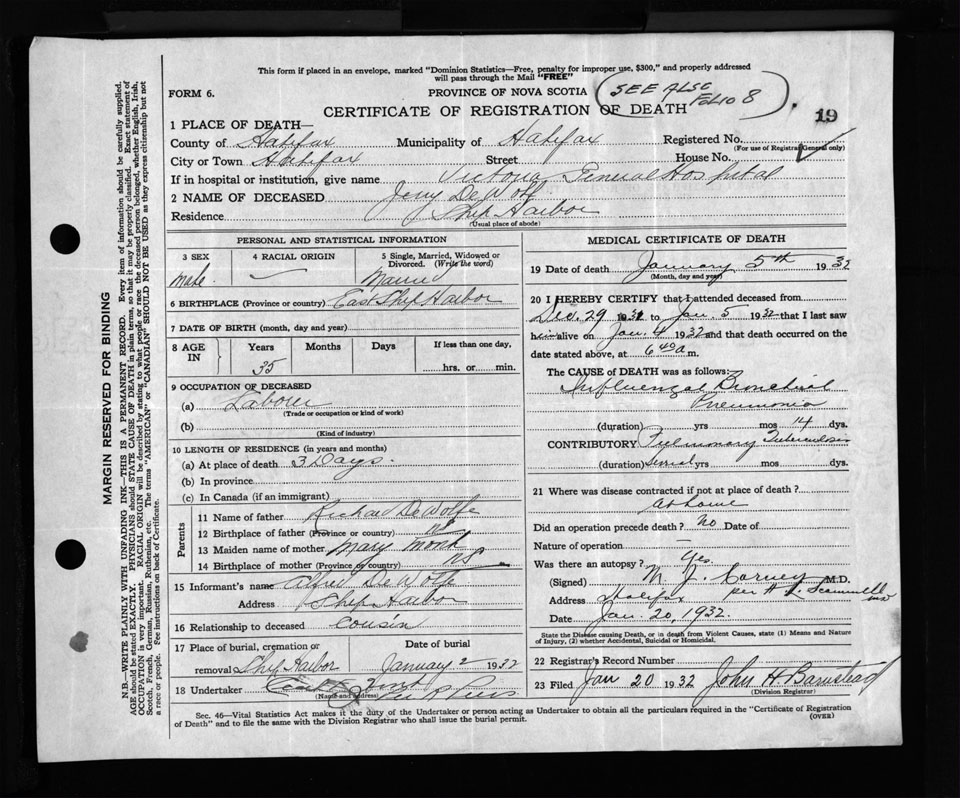 This form if placed in an envelope, marked "Dominion Statistics—Free, penalty for improper use, $300," and properly addressed
will pass through the Mail "FREE"
FORM 6.
PROVINCE OF NOVA SCOTIA
SEE ALSO
FOLIO 8
CERTIFICATE OF REGISTRATION OF DEATH
19
1 PLACE OF DEATH—
County of Halifax Municipality of Halifax Registered No.
(For use of Registrar General only)
City or Town Halifax Street House No.
If in hospital or institution, give name Victoria General Hospital
2 NAME OF DECEASED Jerry DeWolf
Residence Ship Harbor
(Usual place of abode)
PERSONAL AND STATISTICAL INFORMATION
3 SEX 4 RACIAL ORIGIN 5 Single, Married, Widowed or Divorced. (Write the word)
male —
6 BIRTHPLACE (Province or country) East Ship Harbor
7 DATE OF BIRTH (month, day and year)
8 AGE IN Years Months Days If less than one day,
35 hrs. or min.
9 OCCUPATION OF DECEASED
(a) Laborer
(Trade or occupation or kind of work)
(b)
(Kind of industry)
10 LENGTH OF RESIDENCE (in years and months)
(a) At place of death 3 Days.
(b) In province
(c) In Canada (if an immigrant)
Parents
11 Name of father Richard DeWolfe
12 Birthplace of father (Province or country)
13 Maiden name of mother Mary Monk
14 Birthplace of mother (Province or country) NS
15 Informant's name Alfred DeWolfe
Address Ship Harbor
16 Relationship to deceased Cousin
17 Place of burial, cremation or removal Ship Harbor Date of burial January 1932
18 Undertaker
(Name and address)
MEDICAL CERTIFICATE OF DEATH
19 Date of death January 5th 193
(Month, day and year)
20 I HEREBY CERTIFY that I attended deceased from
Dec. 29 to Jan. 5 1932 that I last saw
him alive on Jan 4 1932 and that death occurred on
date stated above, at 6 40 a m.
The CAUSE of DEATH was as follows:
Influenzal Bronchial
Pneumonia
(duration) yrs mos 14 dys.
CONTRIBUTORY Pulmonary Tuberculosis
(duration) several yrs mos dys.
21 Where was disease contracted if not at place of death?
at home
Did an operation precede death? No Date of
Nature of operation —
Was there an autopsy? Yes.
(Signed) M. J. Carney M.D.
Address Halifax per
Date Jan. 20, 1932
State the Disease causing Death, or in death from Violent Causes, state (1) Means and Nature of Injury, (2) whether Accidental, Suicidal or Homicidal.
22 Registrar's Record Number
23 Filed Jan 20 1932 John H Barnstead
(Division Registrar)
Sec. 46—Vital Statistics Act makes it the duty of the Undertaker or person acting as Undertaker to obtain all the particulars required in the "Certificate of Registration
of Death" and to file the same with the Division Registrar who shall issue the burial permit.
(OVER)
MARGIN RESERVED FOR BINDING
N.B.—WRITE PLAINLY WITH UNFADING INK—THIS IS A PERMANENT RECORD. Every item of information should be carefully supplied.
AGE should be stated EXACTLY. PHYSICIANS should STATE CAUSE OF DEATH in plain terms, so that it may be properly classified. Exact statement of
OCCUPATION is very important. RACIAL ORIGIN will be described by stating to what people or race the deceased person belonged, whether English, Irish,
Scotch, French, German, Russian, Ruthenian, etc. The terms "AMERICAN" or "CANADIAN" SHOULD NOT BE USED as they express citizenship but not
a race or people. See instructions on back of Certificate.